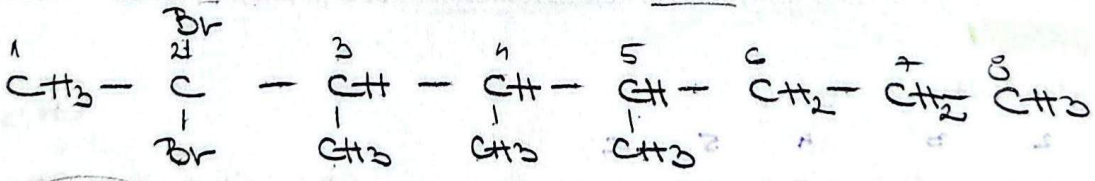 Br
1 2 3 4 5 6 7 8
CH3 — C — CH — CH — CH — CH2 — CH2 — CH3
Br CH3 CH3 CH3